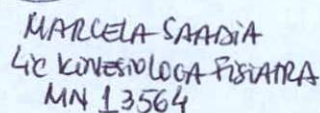 MARCELA SAADIA
LiC KINESIOLOGA FISIATRA
MN 13564